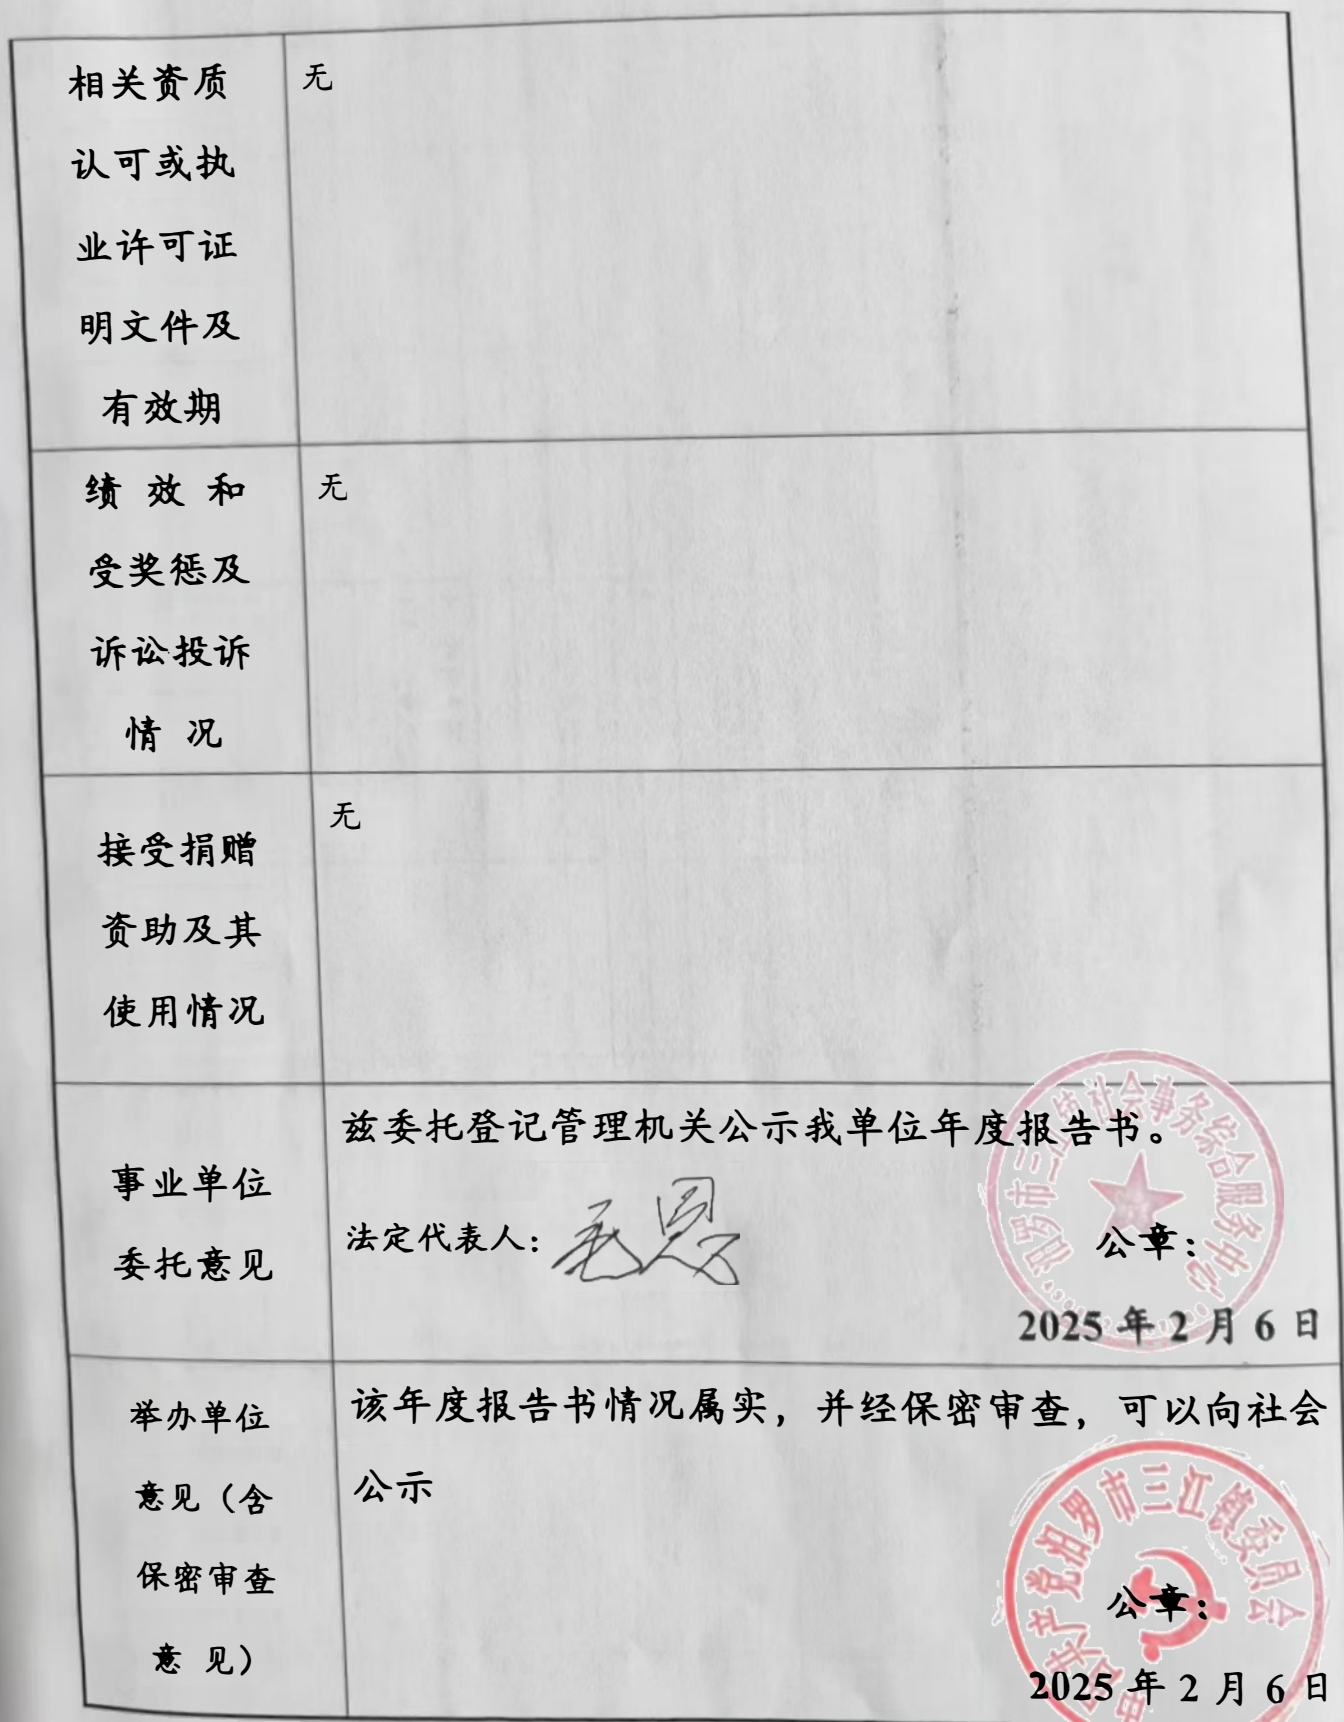 相关资质
认可或执
业许可证
明文件及
有效期
无
绩 效 和
受奖惩及
诉讼投诉
情 况
无
接受捐赠
资助及其
使用情况
无
事业单位
委托意见
兹委托登记管理机关公示我单位年度报告书。
法定代表人：
公章：
2025 年 2 月 6 日
汨罗市三江镇社会事务综合服务中心
举办单位
意见（含
保密审查
意 见）
该年度报告书情况属实，并经保密审查，可以向社会
公示
公章：
2025 年 2 月 6 日
中国共产党汨罗市三江镇委员会